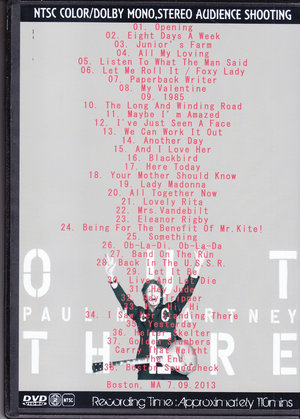 NTSC COLOR/DOLBY MONO,STEREO AUDIENCE SHOOTING
01. Opening
02. Eight Days A Week
03. Junior's Farm
04. All My Loving
05. Listen To What The Man Said
06. Let Me Roll It / Foxy Lady
07. Paperback Writer
08. My Valentine
09. 1985
10. The Long And Winding Road
11. Maybe I'm Amazed
12. I've Just Seen A Face
13. We Can Work It Out
14. Another Day
15. And I Love Her
16. Blackbird
17. Here Today
18. Your Mother Should Know
19. Lady Madonna
20. All Together Now
21. Lovely Rita
22. Mrs.Vandebilt
23. Eleanor Rigby
24. Being For The Benefit Of Mr.Kite!
25. Something
26. Ob-La-Di, Ob-La-Da
27. Band On The Run
28. Back In The U.S.S.R.
29. Let It Be
30. Live And Let Die
31. Hey Jude
32. Day Tripper
33. Hi Hi Hi
34. I Saw Her Standing There
35. Yesterday
36. Helter Skelter
37. Golden Slumbers
Carry That Weight
The End
38. Boston Soundcheck
OUT
PAUL McCARTNEY
THERE
Boston, MA 7.09.2013
DVD
NTSC
Recording Time : Approximately 110mins